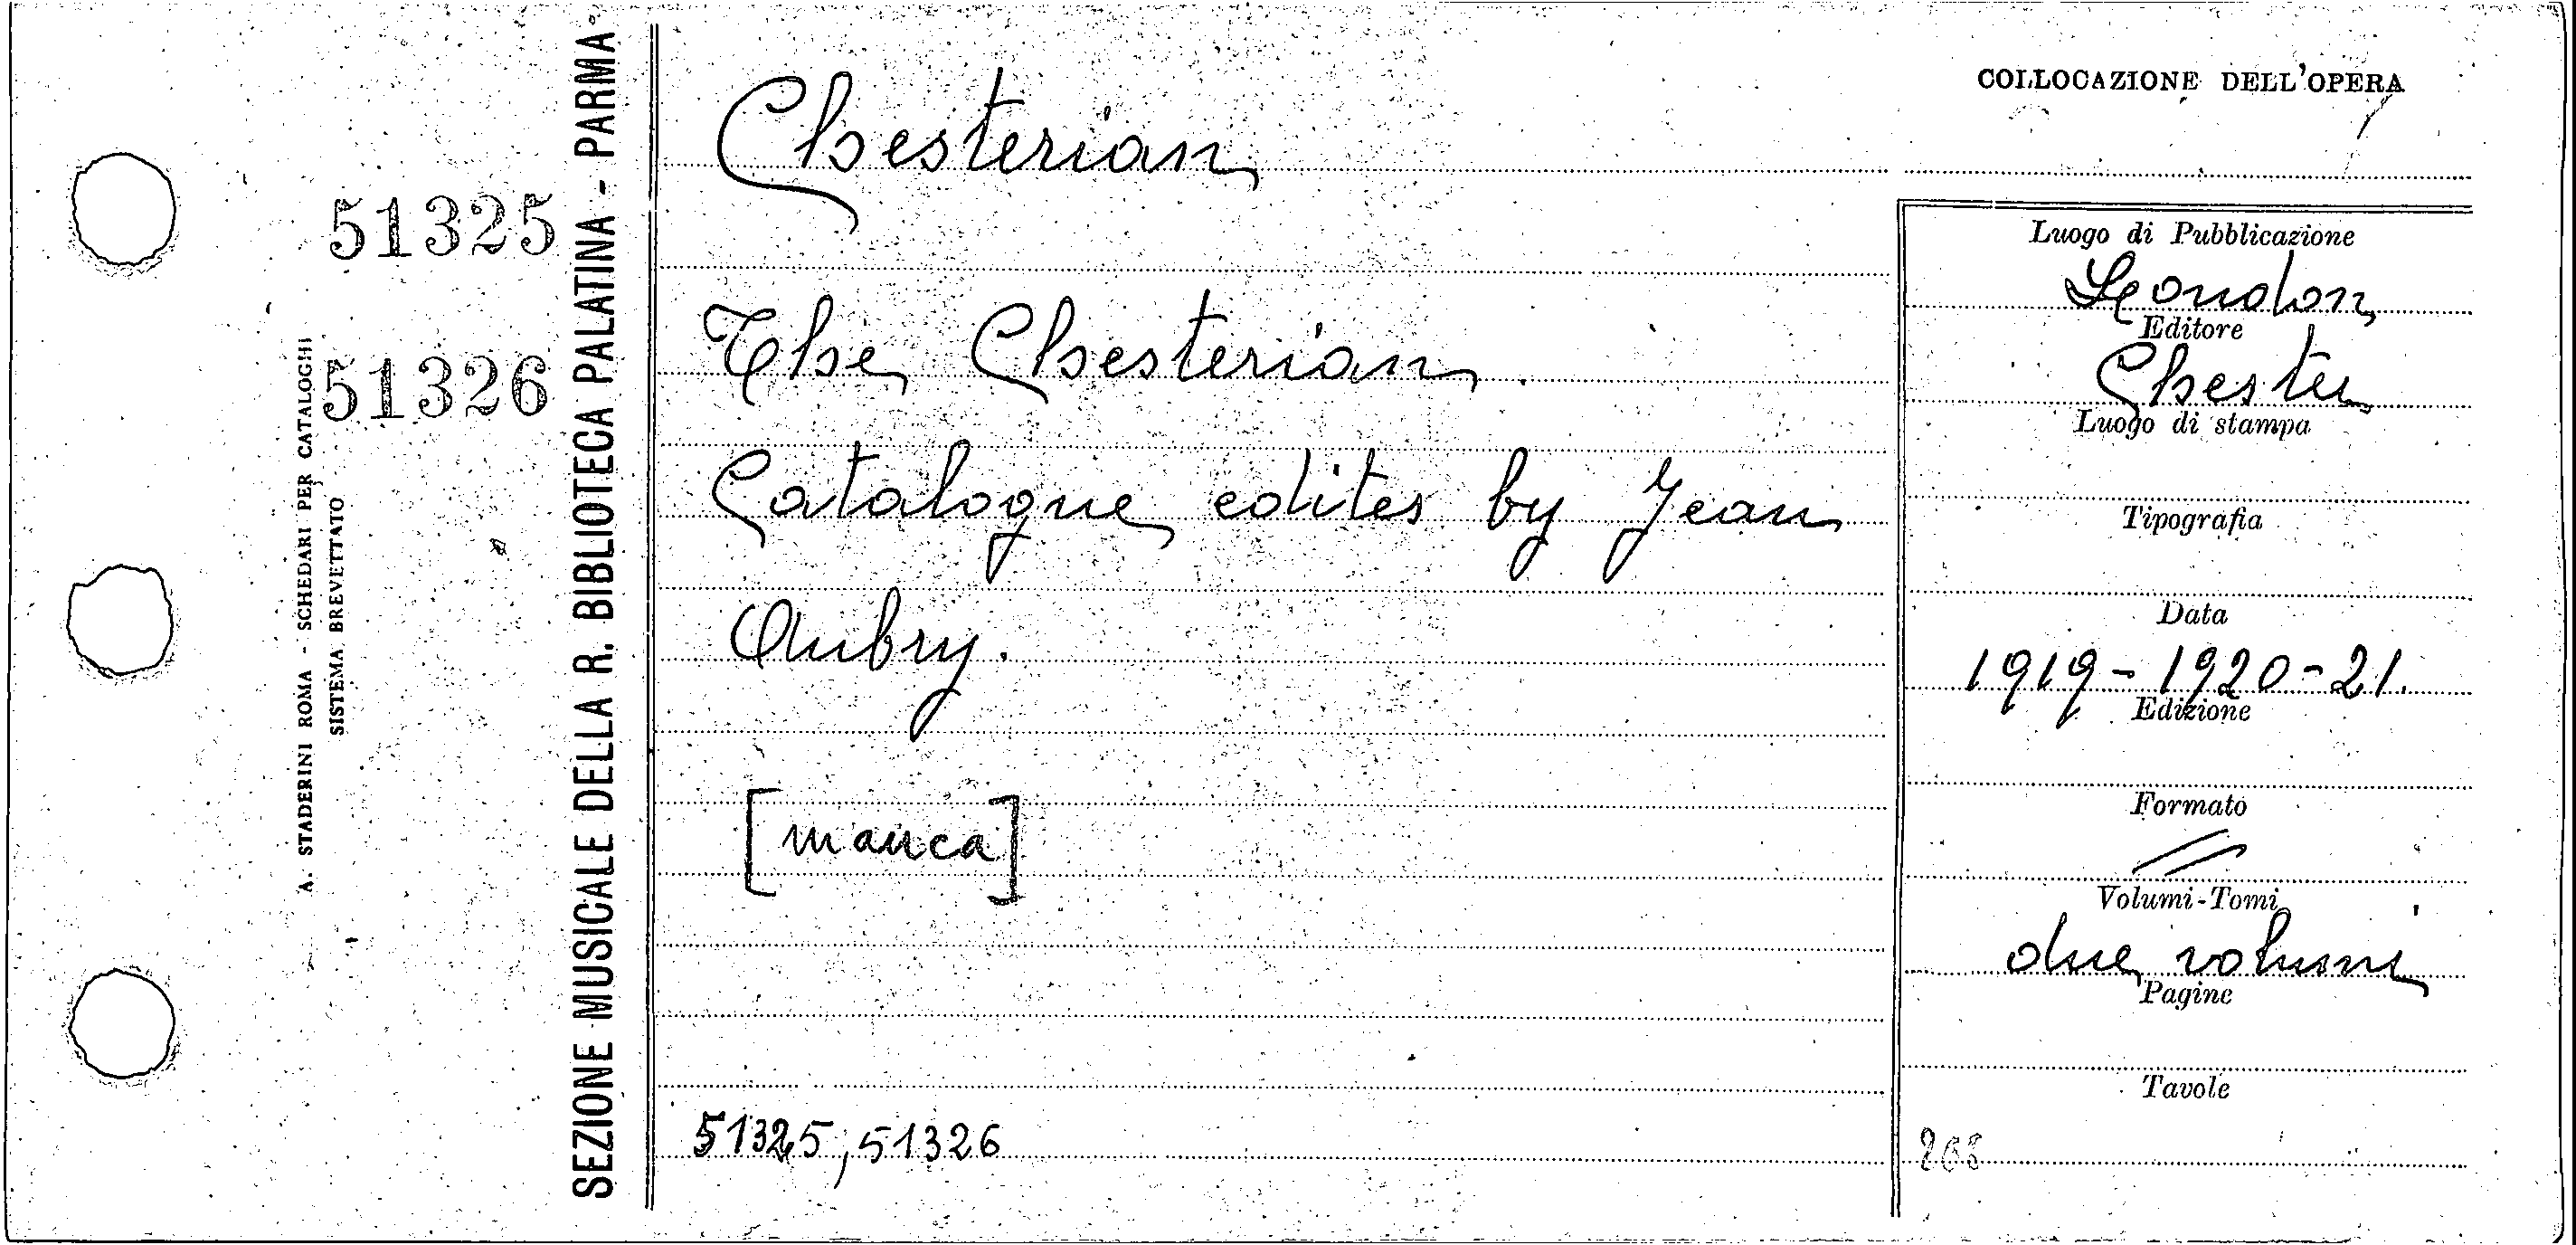 51325
51326
A. STADERINI ROMA - SCHEDARI PER CATALOGHI
SISTEMA BREVETTATO
SEZIONE MUSICALE DELLA R. BIBLIOTECA PALATINA - PARMA
Chesterian
The Chesterian
Catalogue edites by Jean
Aubry.
[manca]
51325, 51326
COLLOCAZIONE DELL'OPERA
Luogo di Pubblicazione
London
Editore
Chester
Luogo di stampa
Tipografia
Data
1919-1920-21.
Edizione
Formato
Volumi-Tomi
due volumi
Pagine
Tavole